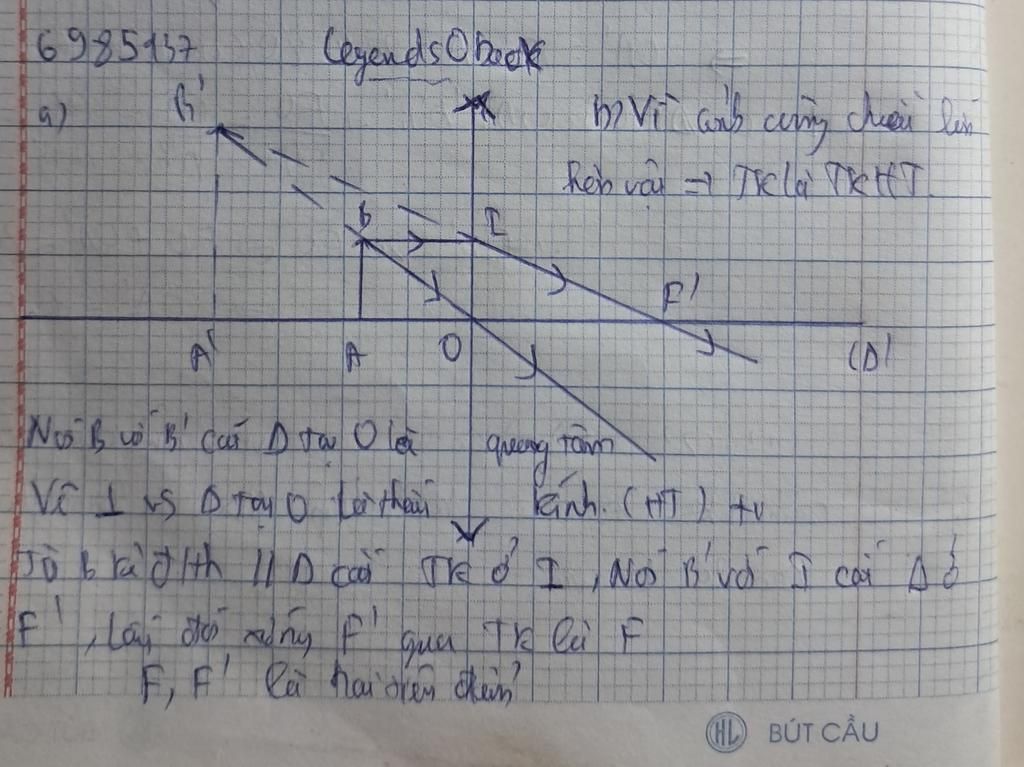 6985137 Legends0book
a) B'
b) Vì ảnh cùng chiều lớn
hơn vật => TK là TKHT
B I
F'
A' A O (Δ)
Nối B với B' cắt Δ tại O là quang tâm
Vẽ ⊥ vs Δ tại O là thấu kính. (HT)
Từ B kẻ đ/th // Δ cắt TK ở I, Nối B' với I cắt Δ ở
F', lấy đối xứng F' qua TK là F
F, F' là hai tiêu điểm
HL BÚT CẦU